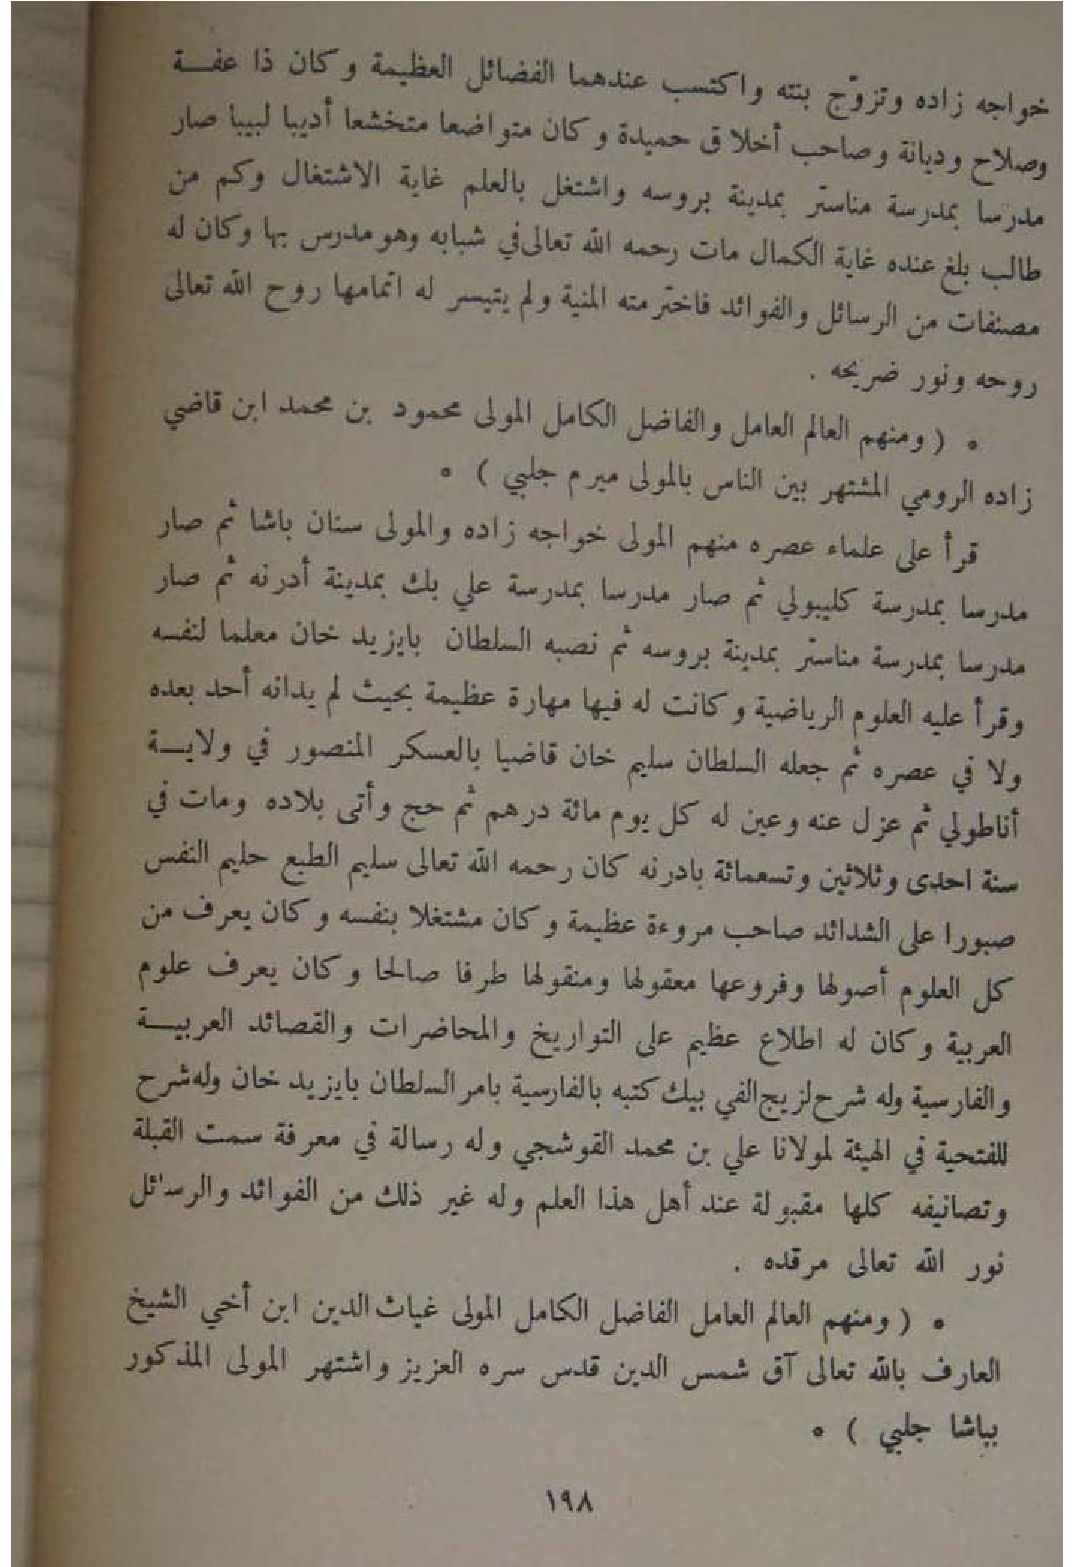 خواجه زاده وتزوّج بنته واكتسب عندهما الفضائل العظيمة وكان ذا عفــة
وصلاح وديانة وصاحب أخلاق حميدة وكان متواضعا متخشعا أديبا لبيبا صار
مدرسا بمدرسة مناستر بمدينة بروسه واشتغل بالعلم غاية الاشتغال وكم من
طالب بلغ عنده غاية الكمال مات رحمه الله تعالى في شبابه وهو مدرس بها وكان له
مصنفات من الرسائل والفوائد فاخترمته المنية ولم يتيسر له اتمامها روح الله تعالى
روحه ونور ضريحه .
* ( ومنهم العالم العامل والفاضل الكامل المولى محمود بن محمد ابن قاضي
زاده الرومي المشتهر بين الناس بالمولى ميرم جلبي ) *
قرأ على علماء عصره منهم المولى خواجه زاده والمولى سنان باشا ثم صار
مدرسا بمدرسة كليبولي ثم صار مدرسا بمدرسة علي بك بمدينة أدرنه ثم صار
مدرسا بمدرسة مناستر بمدينة بروسه ثم نصبه السلطان بايزيد خان معلما لنفسه
وقرأ عليه العلوم الرياضية وكانت له فيها مهارة عظيمة بحيث لم يدانه أحد بعده
ولا في عصره ثم جعله السلطان سليم خان قاضيا بالعسكر المنصور في ولايــة
أناطولي ثم عزل عنه وعين له كل يوم مائة درهم ثم حج وأتى بلاده ومات في
سنة احدى وثلاثين وتسعمائة بادرنه كان رحمه الله تعالى سليم الطبع حليم النفس
صبورا على الشدائد صاحب مروءة عظيمة وكان مشتغلا بنفسه وكان يعرف من
كل العلوم أصولها وفروعها معقولها ومنقولها طرفا صالحا وكان يعرف علوم
العربية وكان له اطلاع عظيم على التواريخ والمحاضرات والقصائد العربيــة
والفارسية وله شرح لزيج الفي بيك كتبه بالفارسية بامر السلطان بايزيد خان وله شرح
للفتحية في الهيئة لمولانا علي بن محمد القوشجي وله رسالة في معرفة سمت القبلة
وتصانيفه كلها مقبولة عند أهل هذا العلم وله غير ذلك من الفوائد والرسائل
نور الله تعالى مرقده .
* ( ومنهم العالم العامل الفاضل الكامل المولى غياث الدين ابن أخي الشيخ
العارف بالله تعالى آق شمس الدين قدس سره العزيز واشتهر المولى المذكور
بباشا جلبي ) *
١٩٨